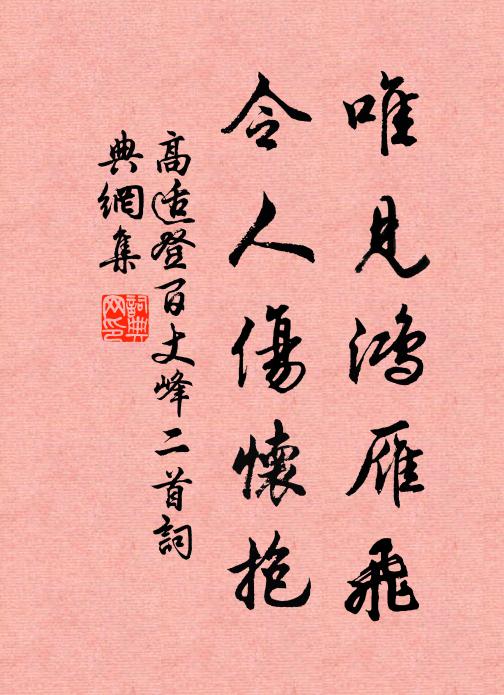 唯見鴻雁飛
令人傷懷抱
高適登百丈峰二首詞
典網集
詞典
网印